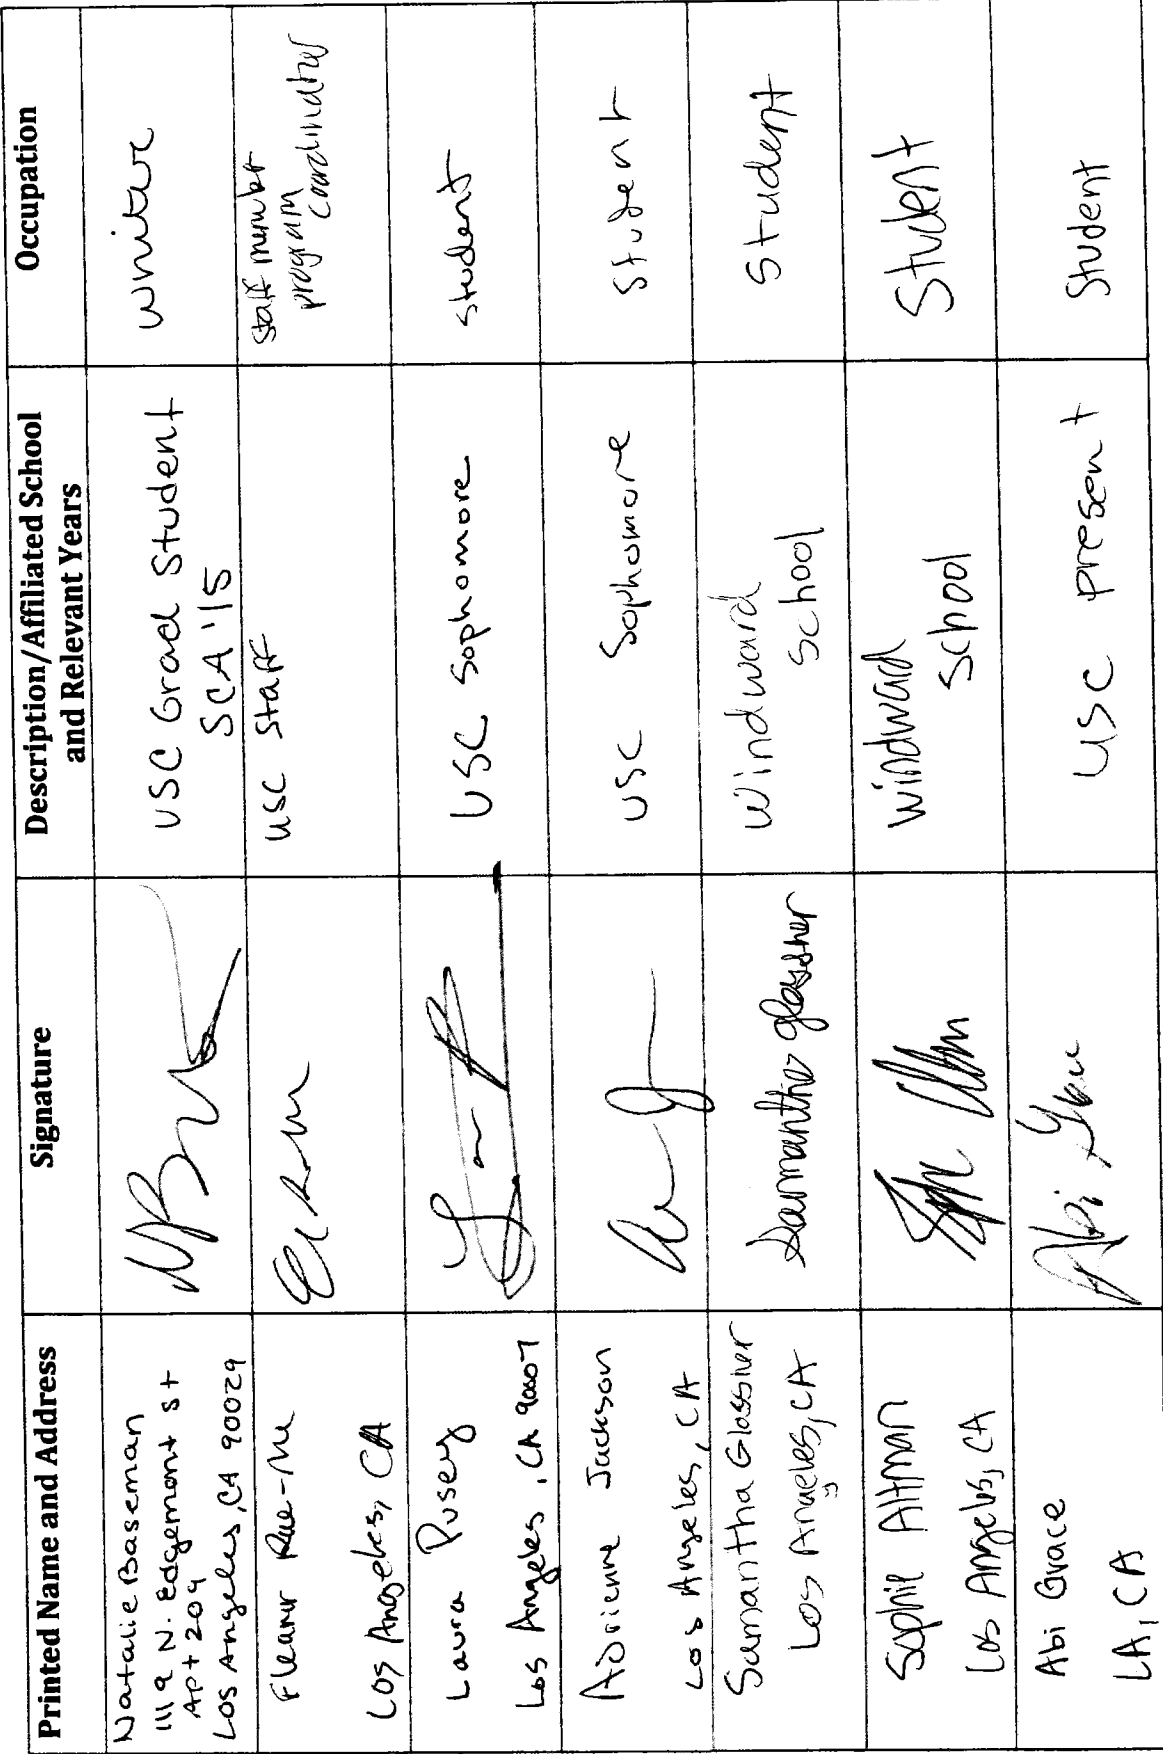 Printed Name and Address
Signature
Description/Affiliated School
and Relevant Years
Occupation
Natalie Baseman
1119 N. Edgemont St
Apt 209
Los Angeles, CA 90029
USC Grad Student
SCA '15
writer
Los Angeles, CA
USC Staff
Staff member
program
coordinator
Laura Pusey
Los Angeles, CA 90007
USC Sophomore
student
Adrienne Jackson
Los Angeles, CA
USC Sophomore
Student
Samantha Glossner
Los Angeles, CA
Samantha Glossner
Windward
School
Student
Sophie Altman
Los Angeles, CA
Windward
School
Student
Abi Grace
LA, CA
Abi Grace
USC present
Student